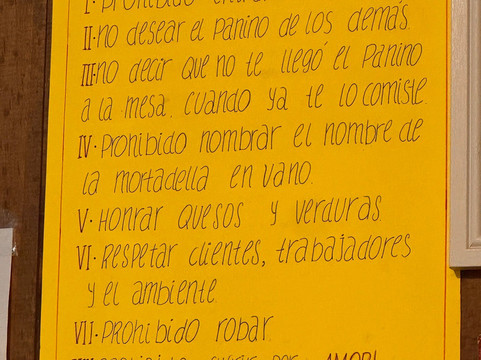 I. Prohibido
II. no desear el panino de los demás.
III. no decir que no te llegó el panino
a la mesa. Cuando ya te lo comiste.
IV. Prohibido nombrar el nombre de
la mortadella en vano.
V. Honrar quesos y verduras
VI. Respetar clientes, trabajadores
y el ambiente
VII. Prohibido robar.
por AMOR!